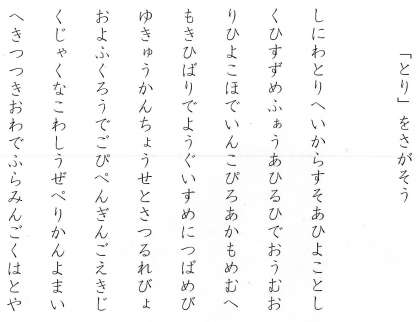 「とり」をさがそう
しにわとりへいからすそあひよことし
くひすずめふぁうあひるひでおうむお
りひよこほでいんこぴろあかもめむへ
もきひばりでようぐいすめにつばめび
ゆきゅうかんちょうせとさつるれびょ
およふくろうでごびぺんぎんごえきじ
くじゃくなこわしうぜぺりかんよまい
へきつつきおわでふらみんごくはとや